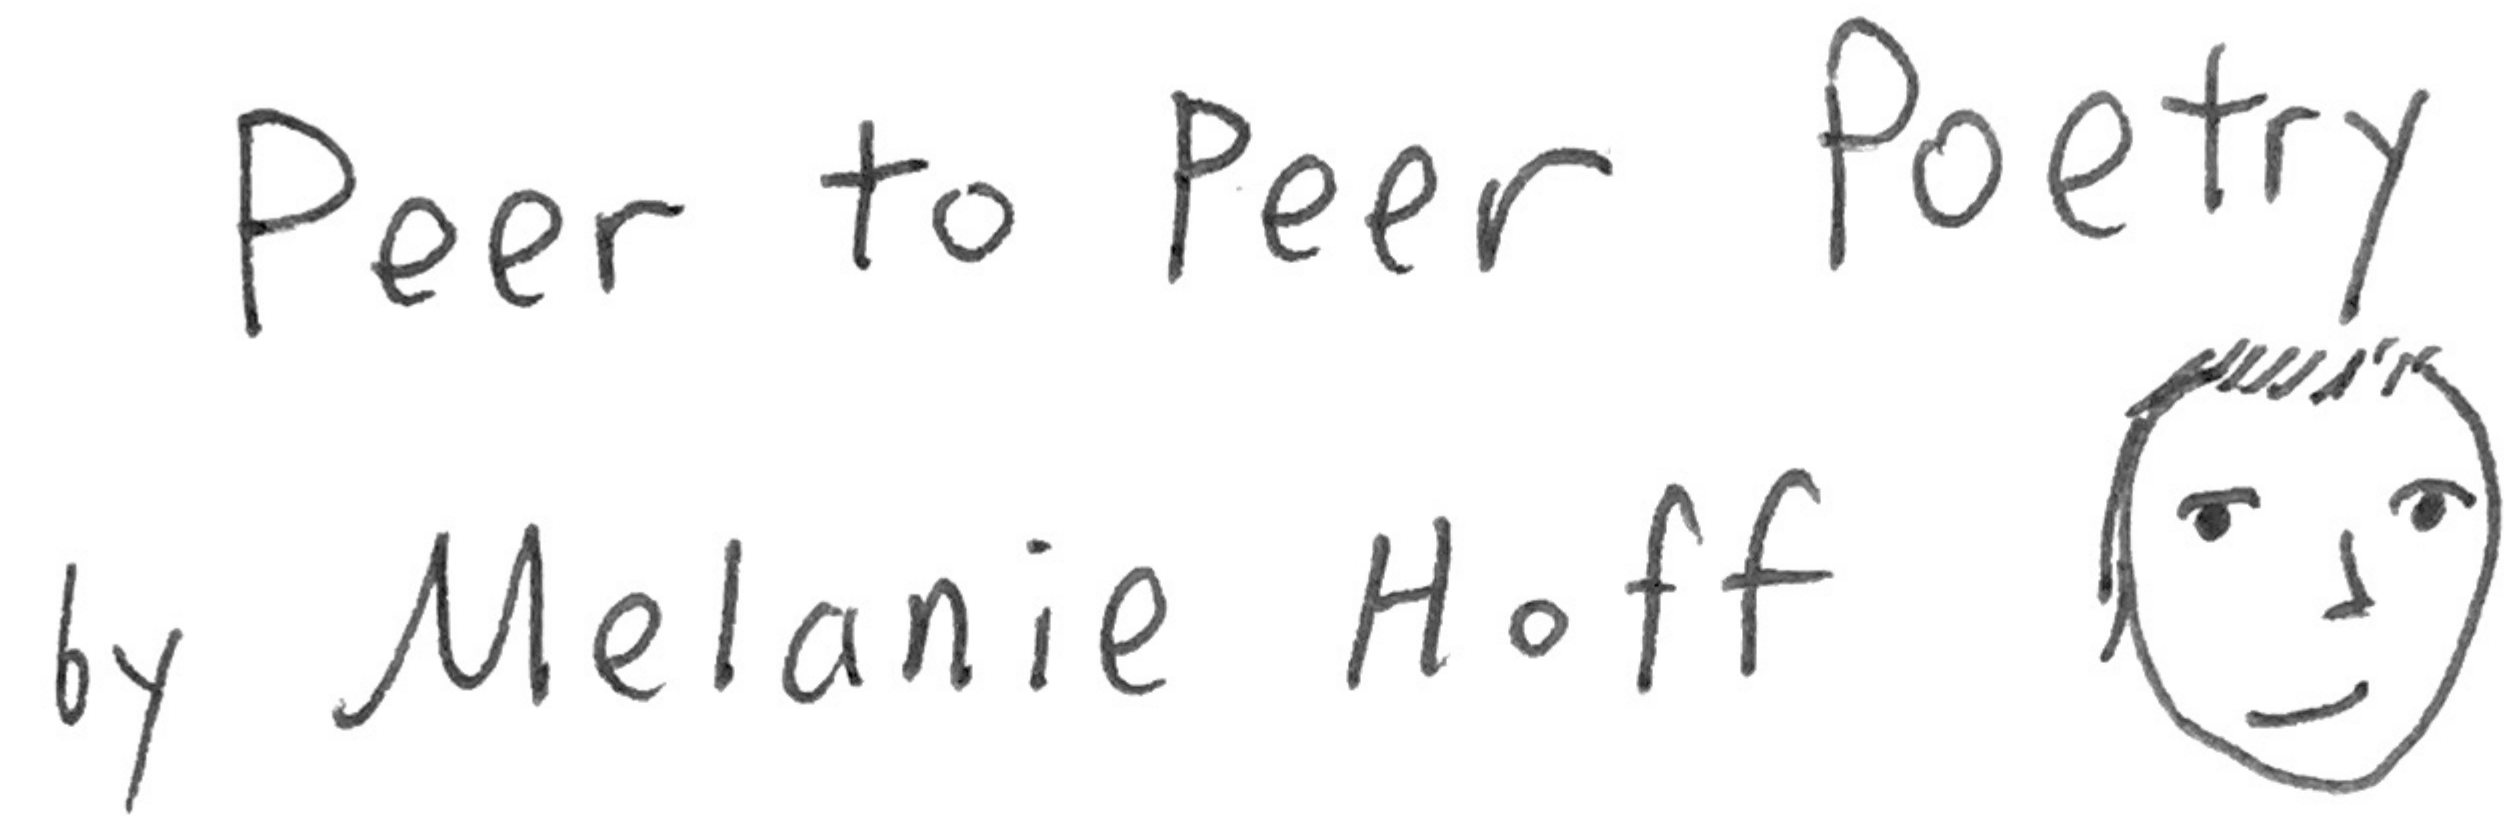 Peer to Peer Poetry
by Melanie Hoff